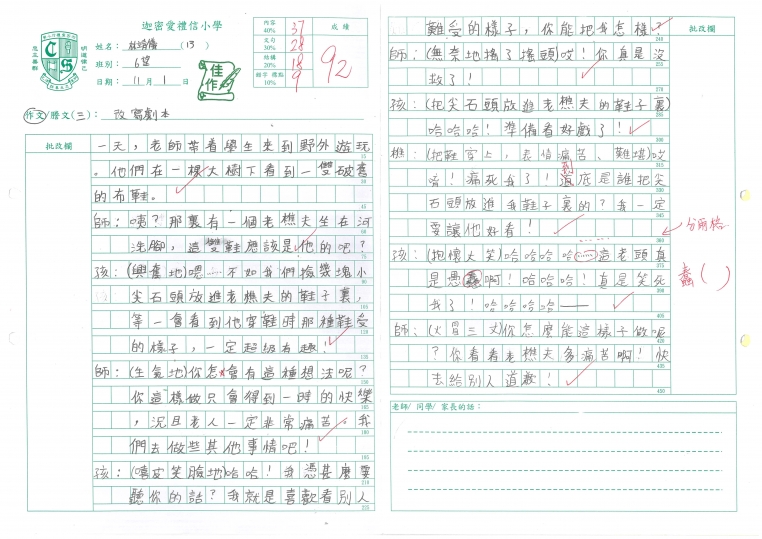 迦密愛禮信小學
姓名：林靖儀 (13)
班別：6望
日期：11月1日
佳作
內容 40% 37
文句 30% 28
結構 20% 18
錯字 標點 10% 9
成績
92
作文/謄文(三)：改寫劇本
批改欄
一天，老師帶着學生來到野外遊玩
。他們在一棵大樹下看到一雙破舊
的布鞋。
師：咦？那裏有一個老樵夫坐在河
洗腳，這雙鞋應該是他的吧？
孩：(興奮地)嗯……不如我們撿幾塊小
尖石頭放進老樵夫的鞋子裏，
等一會看到他穿鞋時那種難受
的樣子，一定超級有趣！
師：(生氣地)你怎會有這種想法呢？
你這樣做只會得到一時的快樂
，況且老人一定非常痛苦。我
們去做些其他事情吧！
孩：(嘻皮笑臉地)哈哈！我憑甚麼要
聽你的話？我就是喜歡看別人
批改欄
難受的樣子，你能把我怎樣？
師：(無奈地搖了搖頭)哎！你真是沒
救了！
孩：(把尖石頭放進老樵夫的鞋子裏)
哈哈哈！準備看好戲了！
樵：(把鞋穿上，表情痛苦、難堪)哎
唷！痛死我了！到底是誰把尖
石頭放進我鞋子裏的？我一定
要讓他好看！
分兩格
孩：(抱懷大笑)哈哈哈哈……這老頭真
是愚蠢啊！哈哈哈！真是笑死
蠢( )
我了！哈哈哈哈——
師：(火冒三丈)你怎麼能這樣子做呢
？你看看老樵夫多痛苦啊！快
去給別人道歉！
老師/ 同學/ 家長的話：